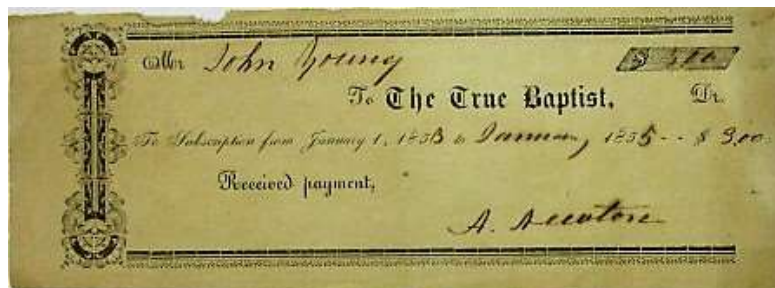 Mr John Young $ 3.00
To The True Baptist, Dr.
To Subscription from January 1, 1853 to January, 1855 -- $ 3.00
Received payment,
A. Newton